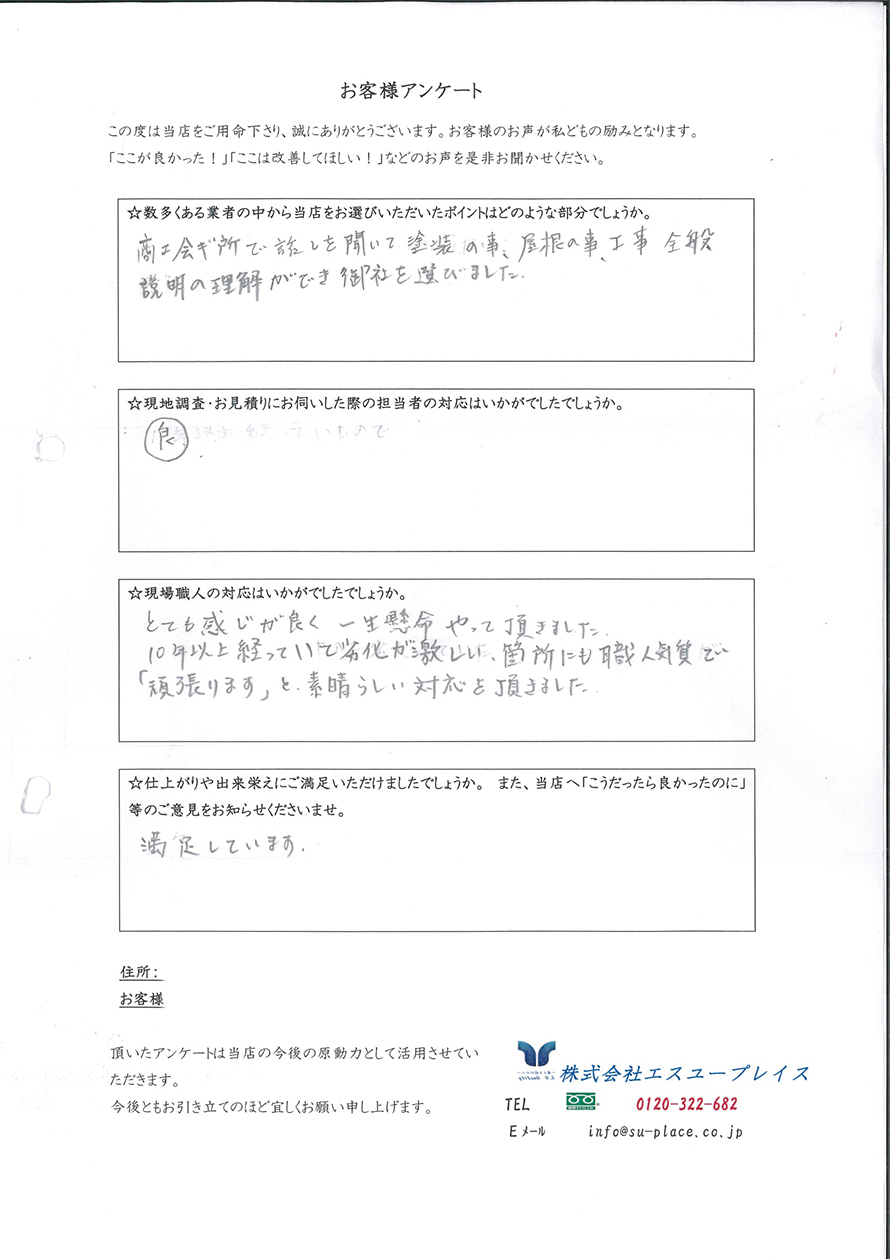 お客様アンケート
この度は当店をご用命下さり、誠にありがとうございます。お客様のお声が私どもの励みとなります。
「ここが良かった！」「ここは改善してほしい！」などのお声を是非お聞かせください。
☆数多くある業者の中から当店をお選びいただいたポイントはどのような部分でしょうか。
商工会ギ所で話しを聞いて塗装の事、屋根の事、工事全般
説明の理解ができ御社を選びました.
☆現地調査・お見積りにお伺いした際の担当者の対応はいかがでしたでしょうか。
良.
☆現場職人の対応はいかがでしたでしょうか。
とても感じが良く 一生懸命 やって頂きました.
10年以上経っていて劣化が激しい、箇所にも職人気質で
「頑張ります」と、素晴らしい対応を頂きました.
☆仕上がりや出来栄えにご満足いただけましたでしょうか。 また、当店へ「こうだったら良かったのに」
等のご意見をお知らせくださいませ。
満足しています.
住所：
お客様
頂いたアンケートは当店の今後の原動力として活用させてい
ただきます。
今後ともお引き立てのほど宜しくお願い申し上げます。
株式会社エスユープレイス
TEL 0120-322-682
Eメール info@su-place.co.jp